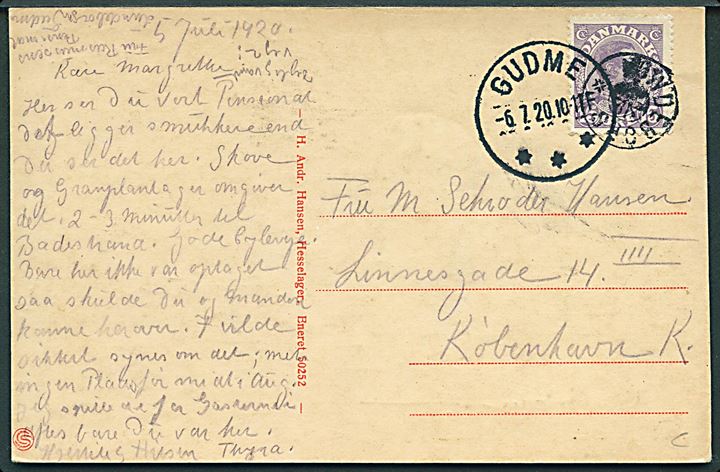 5 Juli 1920.
Kære Margrethe
Her ser du vort Pensionat
det ligger smukkere end
Du ser det her. Skove
og Granplantager omgiver
det. 2-3 minutter til
Badestrand. gode
Bare her ikke var optaget
saa skulde Du og Manden
kunne herover. I vilde
sikkert synes om det, men
ingen Plads før midt i Aug.
for Gæsterne
bare Du var her.
Hjertelig Hilsen Thyra.
Fru Rasmussens
Pensionat
H. Andr. Hansen, Hesselager. Eneret 50252
DANMARK
GUDME
-6.7.20.10-11F.
Fru M. Schrøder Hansen
Linnesgade 14. IIII
København K.
C